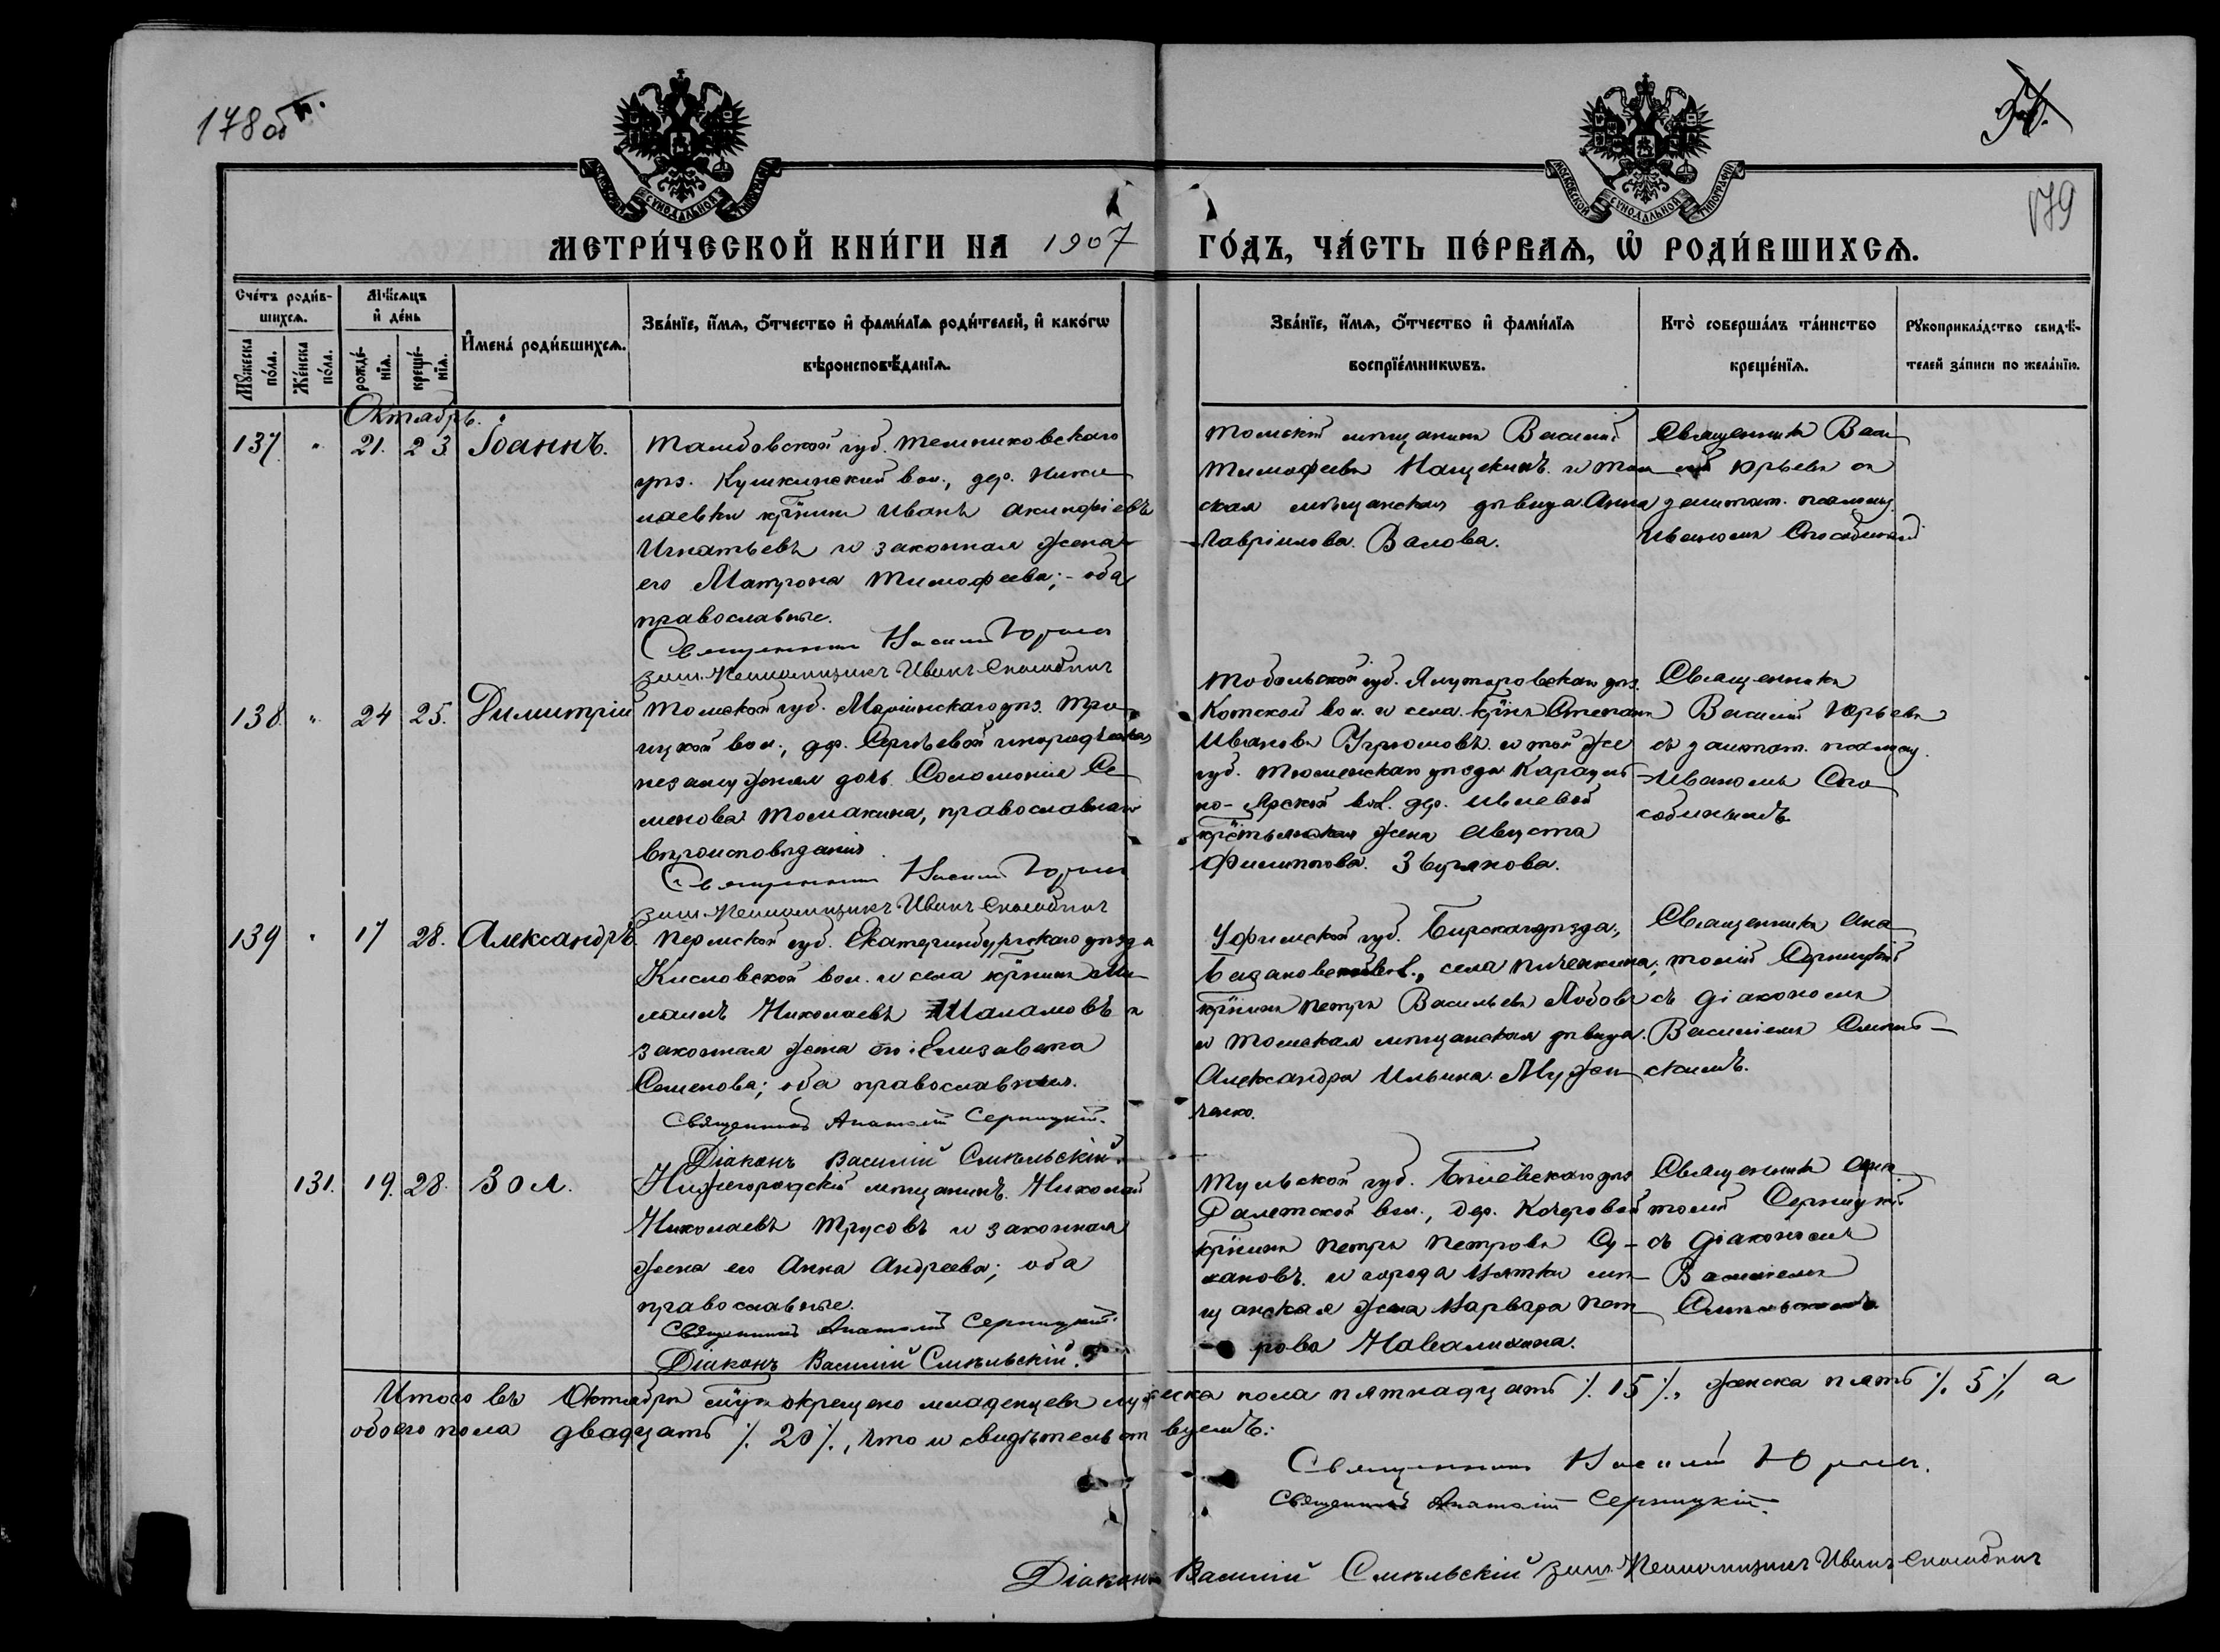 178 об
94.
179
МОСКОВСКОЙ СѴНОДАЛЬНОЙ ТИПОГРАФІИ
МОСКОВСКОЙ СѴНОДАЛЬНОЙ ТИПОГРАФІИ
МЕТРИ́ЧЕСКОЙ КНИ́ГИ НА 1907 ГО́ДЪ, ЧА́СТЬ ПЕ́РВАѦ, Ѡ҆ РОДИ́ВШИХСѦ.
Сче́тъ роди́в-
шихсѧ.
Мꙋ́жеска по́ла.
Же́нска по́ла.
Мѣ́сѧцъ
и҆ де́нь
рожде́-
нїѧ.
креще́-
нїѧ.
И҆мена̀ роди́вшихсѧ.
Зва́нїе, и҆́мѧ, ѻ҆́тчество и҆ фами́лїѧ роди́телей, и҆ како́гѡ
вѣроисповѣ́данїѧ.
Зва́нїе, и҆́мѧ, ѻ҆́тчество и҆ фами́лїѧ
воспрїе́мникѡвъ.
Кто̀ соверша́лъ та́инство
креще́нїѧ.
Рꙋкоприкла́дство свидѣ́-
телей за́писи по жела́нїю.
Октябрь.
137 " 21. 23. Іоаннъ.
Тамбовской губ. Темниковскаго
уѣз. Кушкинской вол., дер. Нико
лаевки кр҃нинъ Иванъ Акинфіевъ
Игнатьевъ и законная жена
его Матрона Тимофеева; - оба
православные.
Священникъ Василій Юрьевъ
зашт. Псаломщикъ Иванъ Способинъ
Томскій мѣщанинъ Василій
Тимофеевъ Нащекинъ и том
ская мѣщанская дѣвица Анна
Гавріилова Валова.
Священникъ Васи
лій Юрьевъ съ
заштат. псаломщ.
Иваномъ Способинымъ
138 " 24 25. Димитрій
Томской губ. Маріинскаго уѣз. Тро
ицкой вол., др. Сергѣевой инородческая
незамужняя дочь Соломонія Се
менова Томакина, православнаго
вѣроисповѣданія.
Священникъ Василій Юрьевъ
зашт. Псаломщикъ Иванъ Способинъ
Тобольской губ. Ялуторовскаго уѣз.
Котской вол. и села кр҃нъ Степанъ
Ивановъ Угрюмовъ и той же
губ. Тюменскаго уѣзда Караульно-
Ярской вол. дер.
крестьянская жена Августа
Филиппова Звѣрякова.
Священникъ
Василій Юрьевъ
съ заштат. псаломщ.
Иваномъ Спо
собинымъ
139 " 17 28. Александръ.
Пермской губ. Екатеринбургскаго уѣзда
Кисловской вол. и села кр҃нинъ Ми
хаилъ Николаевъ Шаламовъ и
законная жена его Елизавета
Семенова; оба православныя.
Священникъ Анатолій Серницкій.
Діаконъ Василій Смѣльскій.
Уфимской губ. Бирскаго уѣзда,
вол., села Пиченкина,
кр҃нинъ Петръ Васильевъ Лобовъ
и Томская мѣщанская дѣвица
Александра Ильина Мужен
ченко.
Священникъ Ана
толій Серницкій
съ діакономъ
Василіемъ Смѣль
скимъ.
131. 19. 28. Зоя.
Нижегородскій мѣщанинъ Николай
Николаевъ Трусовъ и законная
жена его Анна Андреева; оба
православные.
Священникъ Анатолій Серницкій.
Діаконъ Василій Смѣльскій.
Тульской губ. Бѣлёвскаго уѣз.
вол., дер. Кочеровой
кр҃нинъ Петръ Петровъ Су-
хановъ и города Вятки мѣ
щанская жена Варвара Пет
рова Новалихина.
Священникъ Ана
толій Серницкій
съ діакономъ
Василіемъ
Смѣльскимъ
Итого въ Октябрѣ м҃цѣ окрещено младенцевъ мужеска пола пятнадцать ·/. 15 ·/., женска пять ·/. 5 ·/. а
обоего пола двадцать ·/. 20 ·/., что и свидѣтельствуемъ:
Священникъ Василій Юрьевъ.
Священникъ Анатолій Серницкій.
Діаконъ Василій Смѣльскій зашт. Псаломщикъ Иванъ Способинъ